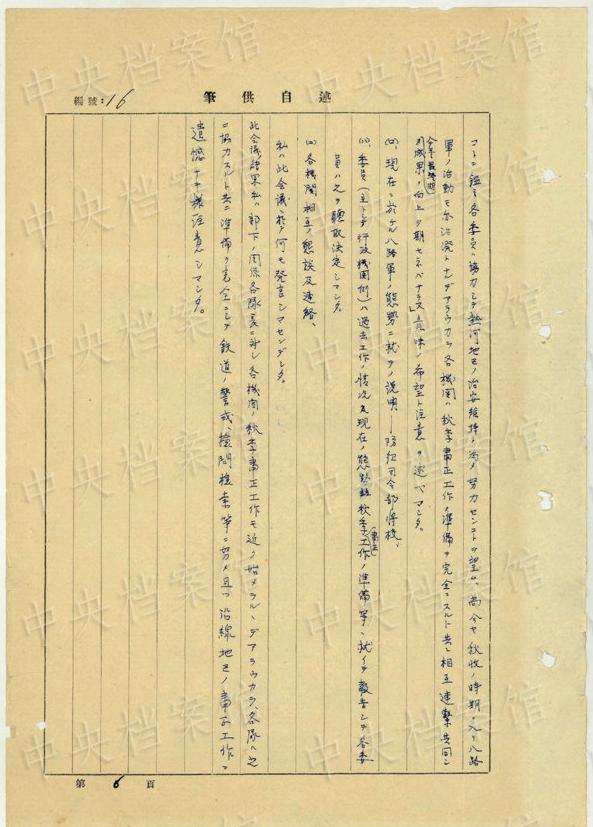 筆供自述
編號:16
コトニ鑑ミ各委員ハ協力シテ熱河地区ノ治安維持ノ為メ努力センコトヲ望ム、尚今ヤ秋收ノ時期ニ入リ八路
軍ノ活動モ亦活潑トナルデアラウカラ各機関ハ秋季粛正工作ノ準備ヲ完全ニスルト共ニ相互連繫共同シ
成果ノ向上ヲ期セネバナラヌ」意味ノ希望ト注意ヲ述ベマシタ。
(四)、現在ニ於ケル八路軍ノ態勢ニ就テノ説明——防衛司令部将校、
(八)、委員(主トシテ行政機関側)ハ過去工作ノ情况及現在ノ態勢並秋季(粛正)工作ノ準備等ニ就イテ報告シテ各委
員ハ之ヲ聴取決定シマシタ。
(二)各機関相互ノ懇談及連絡、
私ハ此会議ニ於テ何モ発言シマセンデシタ。
此会議ノ結果私ハ部下ノ関係各隊長ニ対シ各機関ノ秋季粛正工作モ近ク始メラル、デアラウカラ、各隊ハ之
ニ協力スルト共ニ準備ヲ完全ニシテ鉄道ノ警戒、検問検索等ニ努メ且ツ沿線地区ノ粛正工作ニ
遺憾ナキ様注意シマシタ。
第 6 頁
中央档案馆